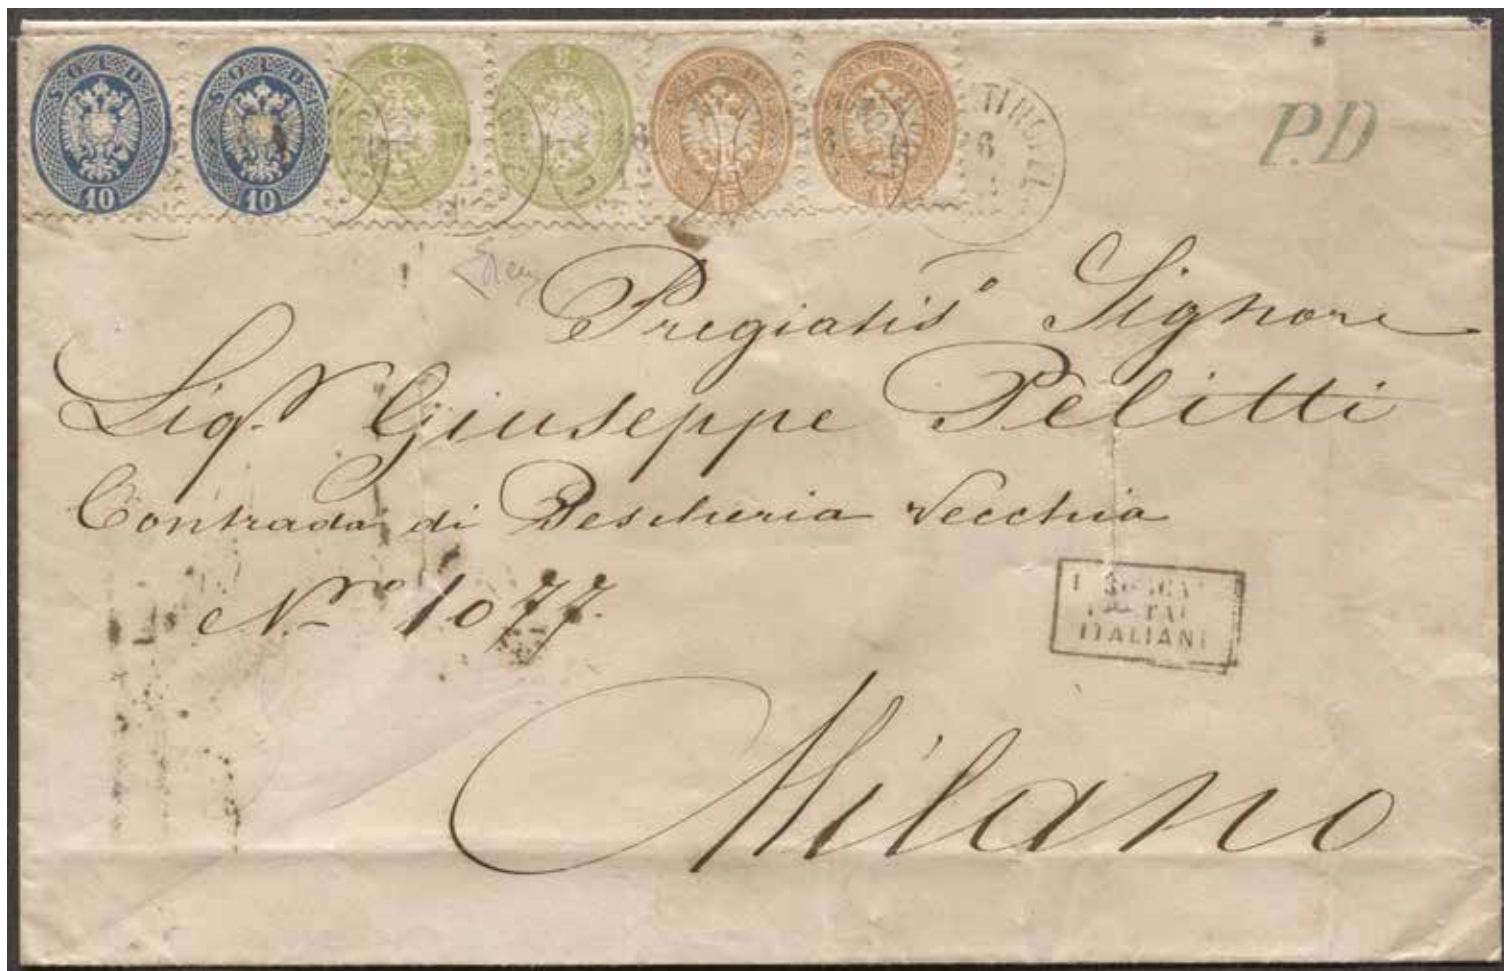 SOLDI SOLDI 3 3 SOLDI SOLDI
10 10 15 15
P.D
Pregiatis° Signore
Sigr Giuseppe Pelitti
Contrada di Pescheria Vecchia
Nro 1077.
ITALIANI
Milano